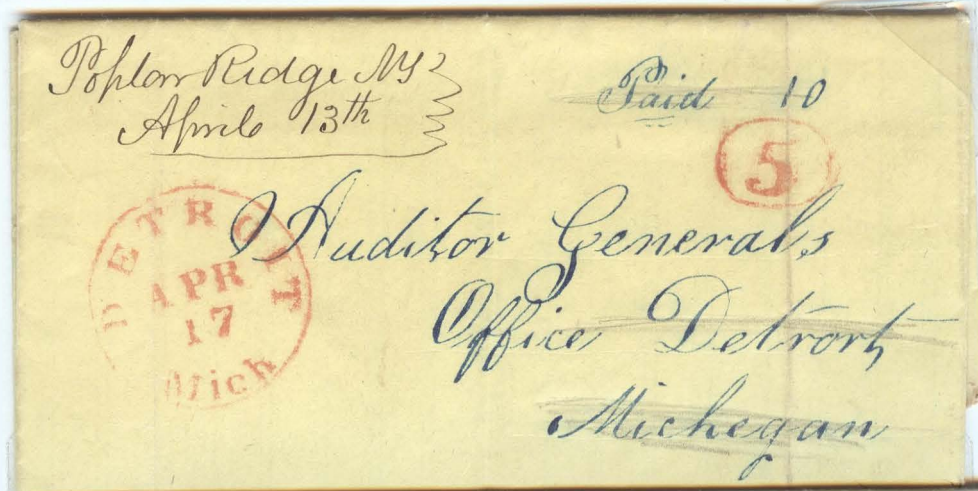 Poplar Ridge NY
April 13th
Paid 10
5
DETROIT
APR
17
Mich
Auditor Generals
Office Detroit,
Michegan